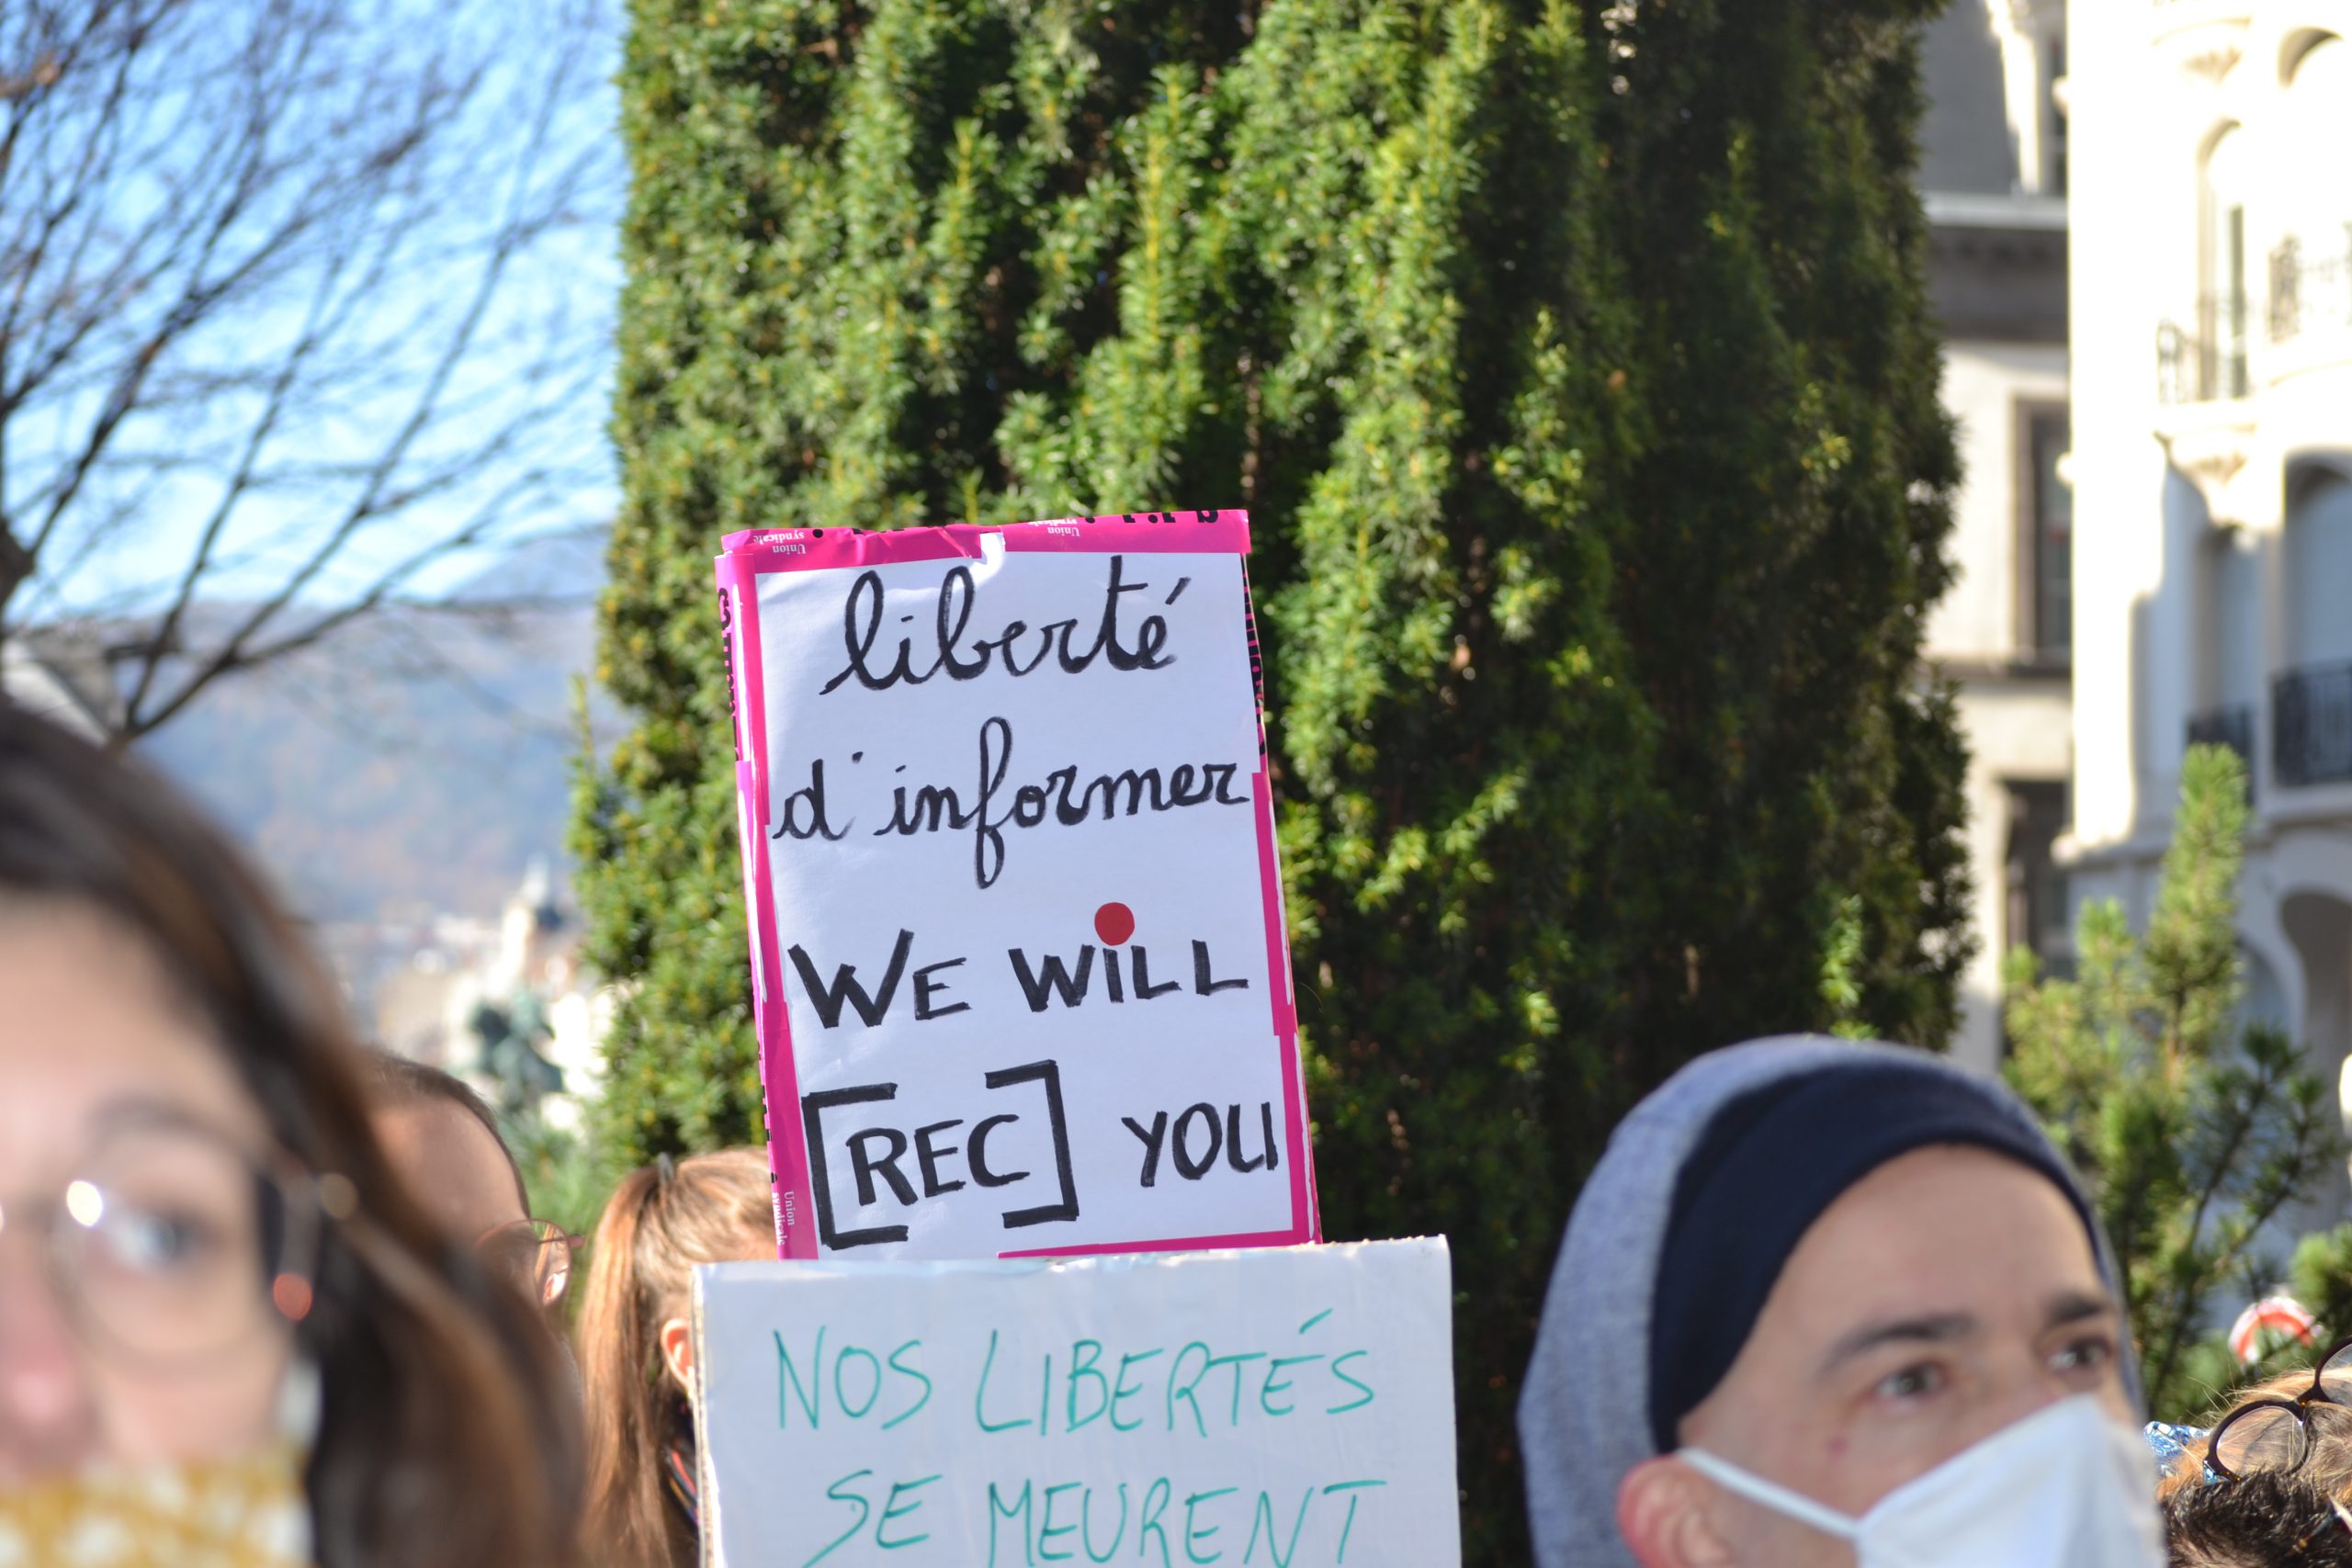 Union
syndicale
Union
syndicale
liberté
d'informer
WE WiLL
[REC] YOU
Union
syndicale
NOS LIBERTÉS
SE MEURENT